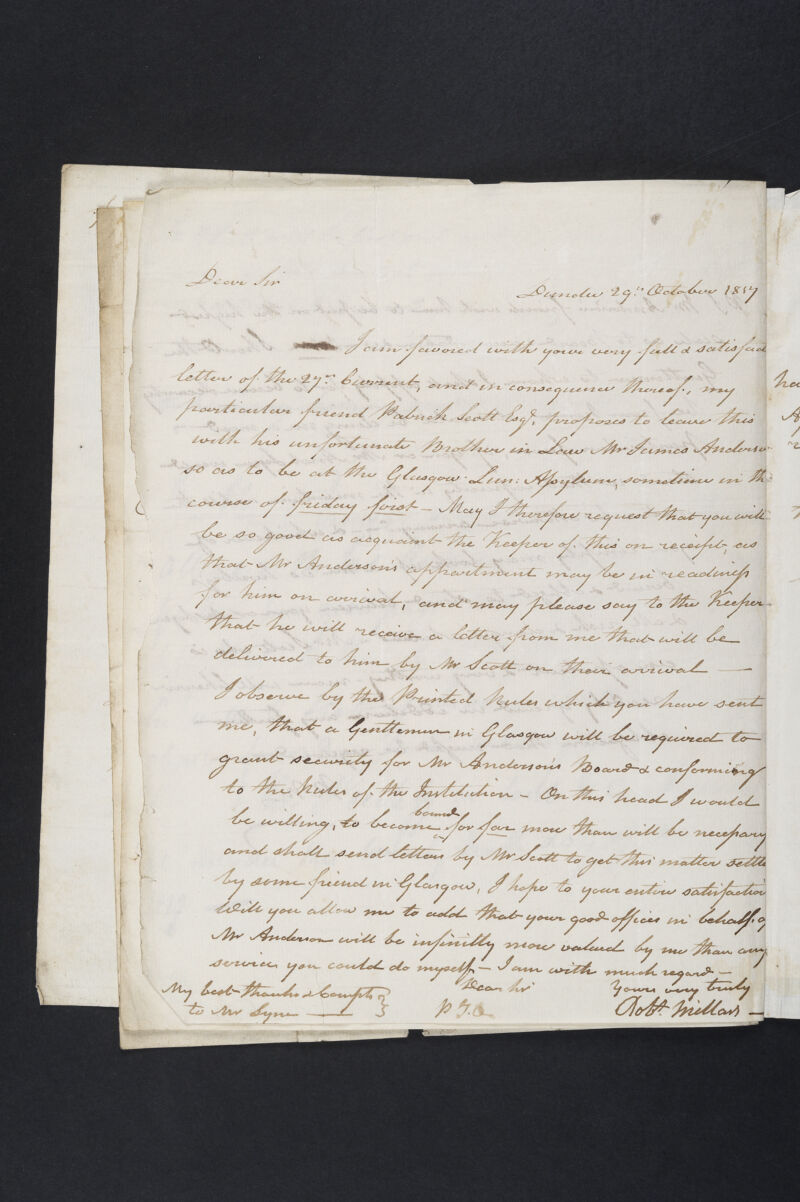 Dear Sir
Dundee 29th October 1817
I am favored with your very full & satisfact
letter of the 27th Current, and in consequence thereof, my
particular friend Patrick Scott Esqr. proposes to leave this
with his unfortunate Brother in Law Mr James Anderso
so as to be at the Glasgow Lun: Asylum, sometime in th
course of friday first — May I therefore request that you will
be so good as acquaint the Keeper of this on receipt, as
that Mr Anderson's appartment may be in readiness
for him on arrival, and may please say to the Keeper
that he will receive a letter from me that will be
delivered to him by Mr Scott on their arrival —
I observe by the Printed Rules which you have sent
me, that a Gentleman in Glasgow will be required to
grant security for Mr Anderson's Board & conforming
to the Rules of the Institution – On this head I would
be willing, to become bound for far more than will be necessary
and shall send letters by Mr Scott to get this matter settle
by some friend in Glasgow, I hope to your entire satisfaction
Will you allow me to add that your good offices in behalf o
Mr Anderson will be infinitly more valued by me than any
service you could do myself – I am with much regard –
Dear Sir Yours very truly
My best thanks & Compts
to Mr Syme — P.T.O. Robt. Millar —
ha